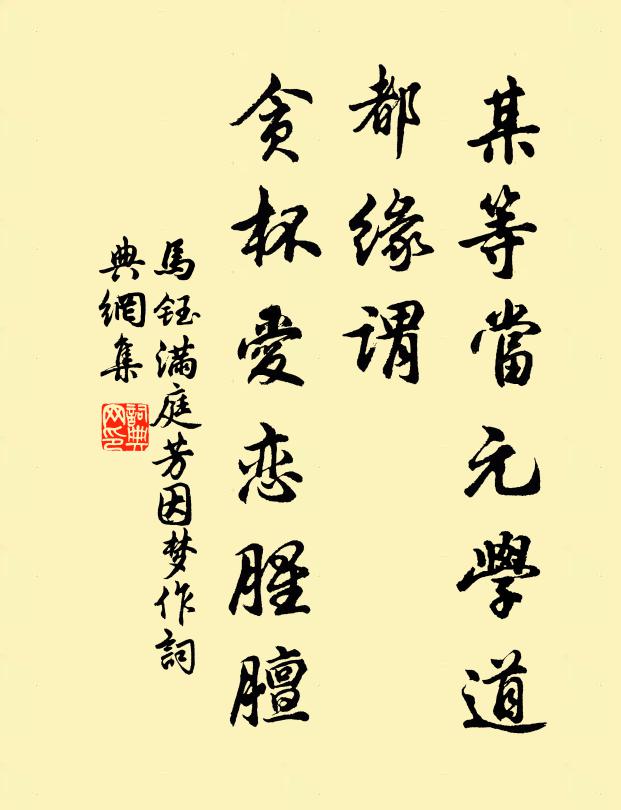 某等當元學道
都緣謂
貪杯愛恋腥膻
馬鈺满庭芳因梦作詞
典網集
詞典网印